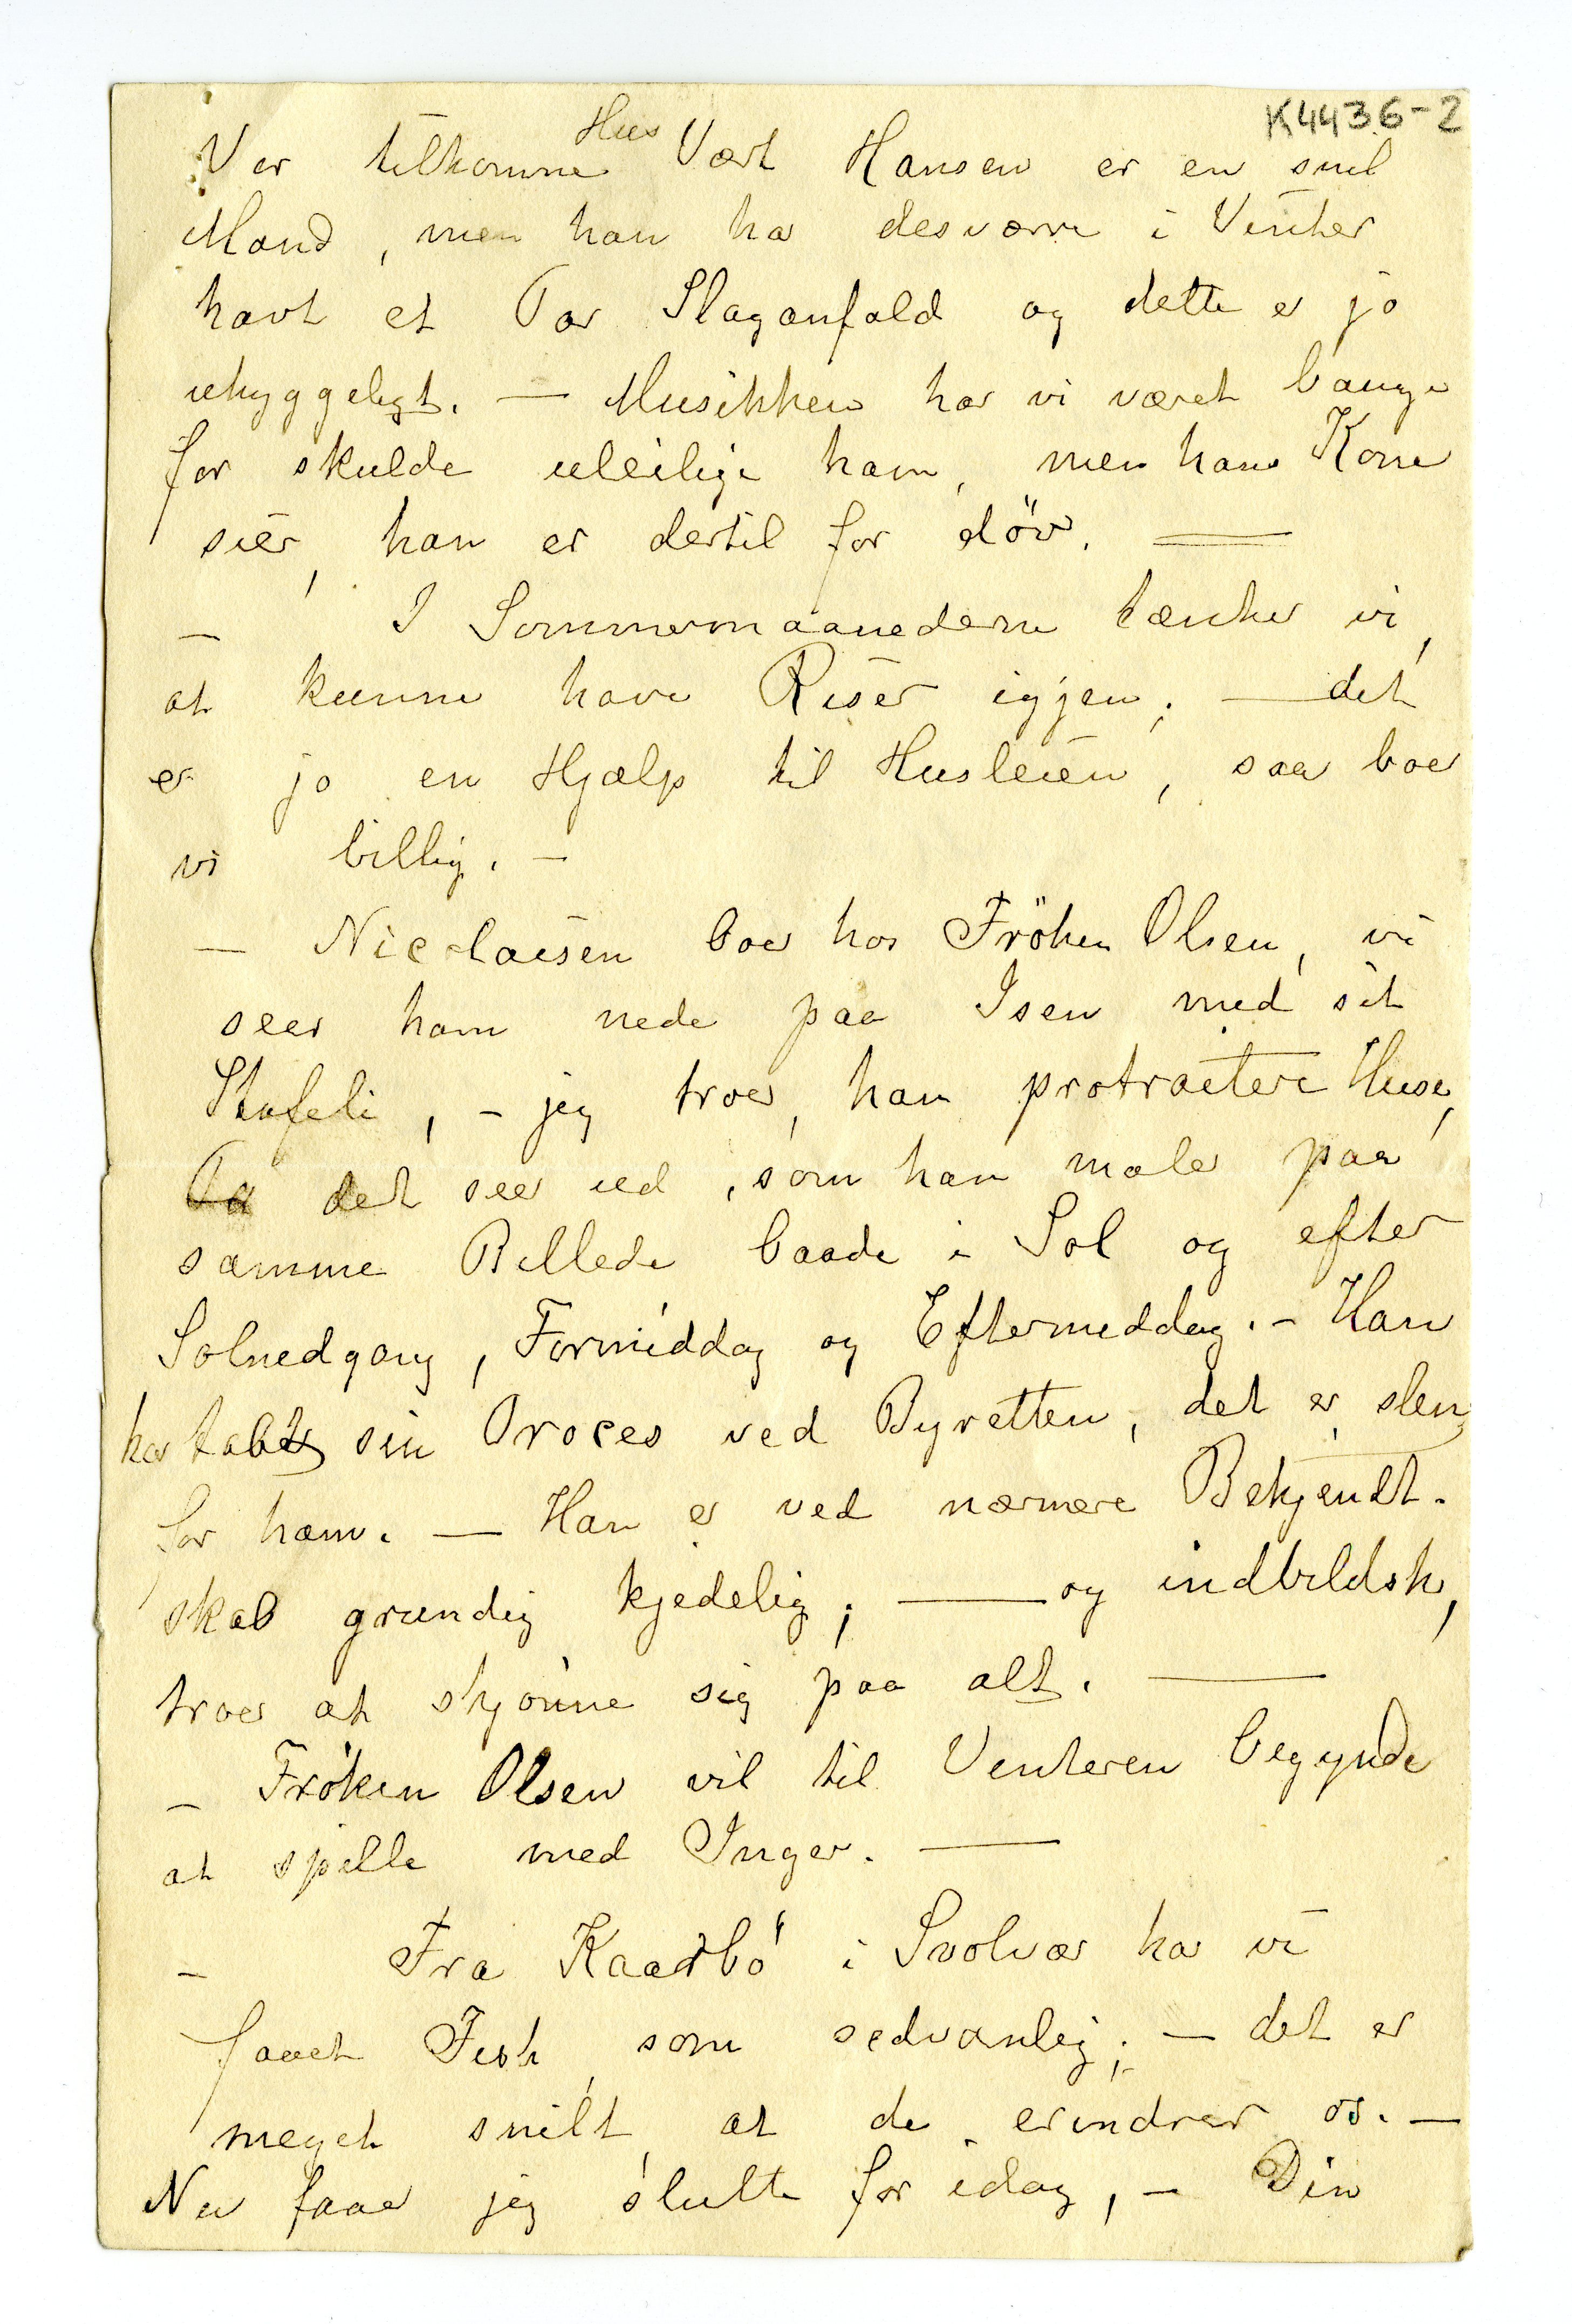 K4436-2
Vor tilkomne Hus Vært Hansen er en snil
Mand, men han har desværre i Vinter
havt et Par Slaganfald og dette er jo
uhyggeligt. — Musikken har vi været bange
for skulde uleilige ham, men hans Kone
sier, han er dertil for döv. —
— I Sommermaanederne tænker vi,
at kunne have Riser igjen; — det
er jo en Hjælp til Husleien, saa boer
vi billig. —
— Nicolaisen boer hos Fröken Olsen, vi
seer ham nede paa Isen med sit
Stafeli, – jeg troer, han protræterer Huse,
Da det seer ud, som han maler paa
samme Billede baade i Sol og efter
Solnedgang, Formiddag og Eftermiddag. – Han
har tabt sin Proces ved Byretten, det er slemt
for ham. — Han er ved nærmere Bekjendt-
skab grundig kjedelig; — og indbildsk,
troer at skjönne sig paa alt. —
– Fröken Olsen vil til Vinteren begynde
at spille med Inger. —
– Fra Kaarbö i Svolvær har vi
faaet Fisk, som sedvanlig; — det er
meget snilt, at de erindrer os. —
Nu faar jeg slutte for idag, – Din